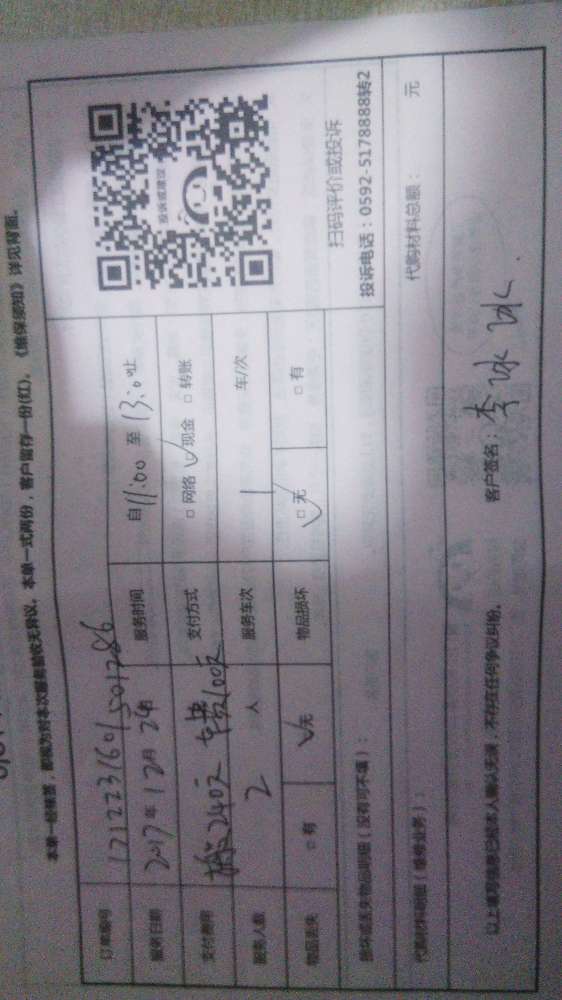 本单一经签签,即视为对本次服务验收无异议。本单一式两份,客户留存一份(红)。《维保须知》详见背面。
订单编号 1712231601501286
服务日期 2017年12月24日 服务时间 自11:00至13:00止
支付费用 搬运240元 100元 支付方式 □网络 ✓现金 □转账
服务人数 2人 服务车次 1车/次
物品丢失 □有 ✓无 物品损坏 □无 ✓ □有
投诉或建议
扫码评价或投诉
投诉电话:0592-5178888转2
损坏或丢失物品明细(没有可不填):
代购材料明细(维修业务): 代购材料总额: 元
以上填写信息已经本人确认无误,不存在任何争议纠纷。 客户签名:李冰冰.